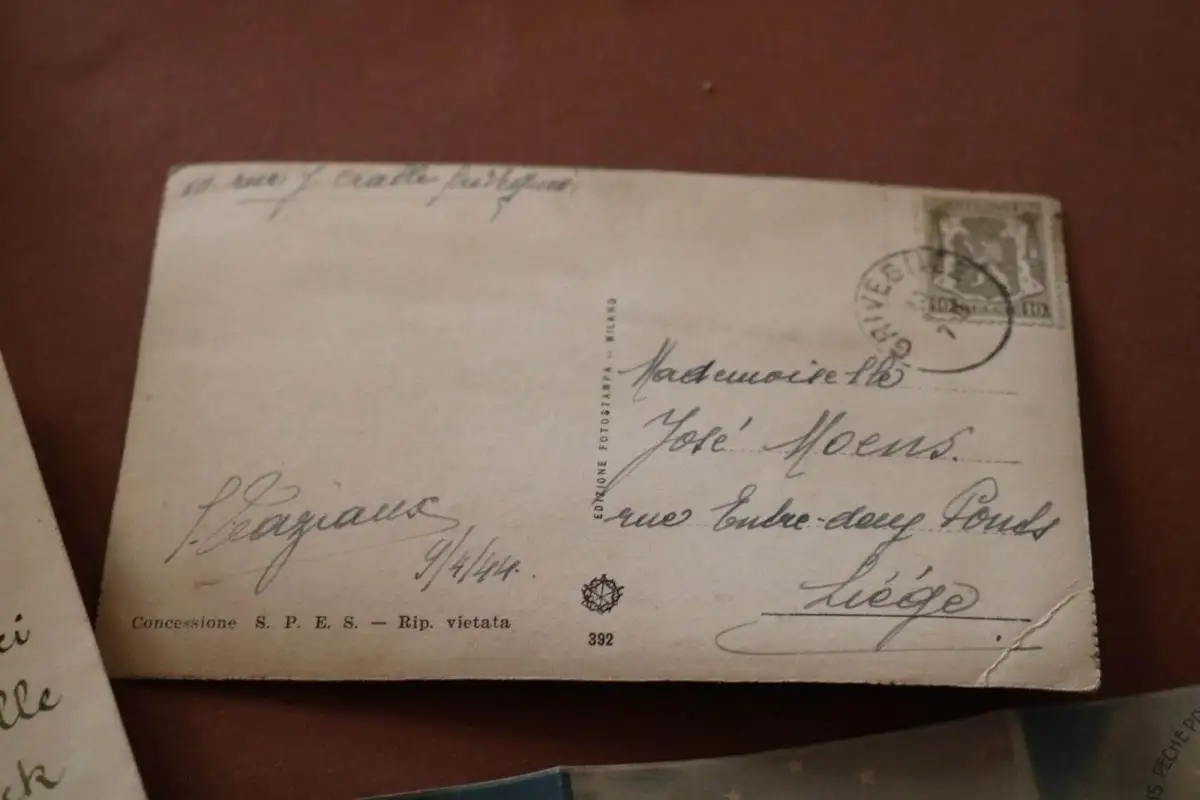 rue J.
GRIVEGNEE
7
10 10
EDIZIONE FOTOSTAMPA - MILANO
Mademoiselle
José Moens.
rue Entre-deux Ponts
Liége
9/4/44.
Concessione S. P. E. S. — Rip. vietata
392
ci
lle
ck
IS PECHE PO